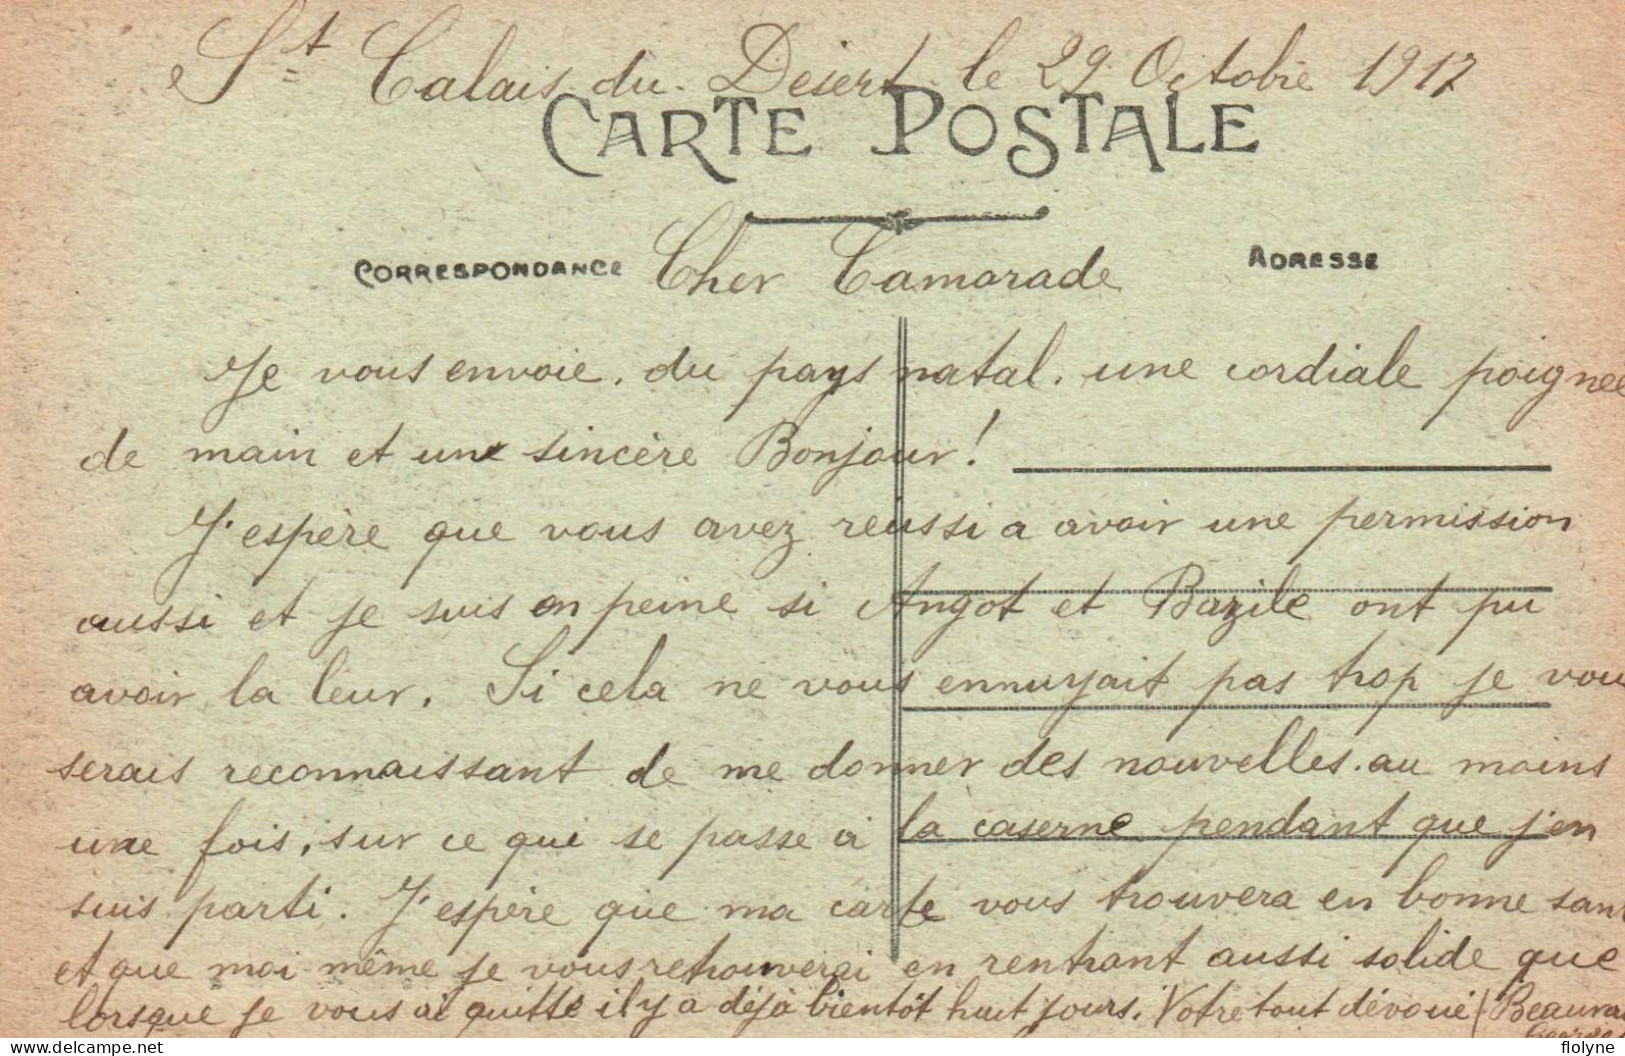 St Calais du Désert le 29 Octobre 1917
CARTE POSTALE
CORRESPONDANCE
ADRESSE
Cher Camarade
Je vous envoie, du pays natal, une cordiale poignée
de main et une sincère Bonjour!
J'espère que vous avez reussi a avoir une permission
aussi et je suis en peine si Angot et Bazile ont pu
avoir la leur. Si cela ne vous ennuyait pas trop je vous
serais reconnaissant de me donner des nouvelles. au moins
une fois, sur ce qui se passe à la caserne pendant que j'en
suis parti. J'espère que ma carte vous trouvera en bonne santé
et que moi-même je vous retrouverai en rentrant aussi solide que
lorsque je vous ai quitté il y a déjà bientôt huit jours. Votre tout dévoué
Georges
Delcampe.net
flolyne